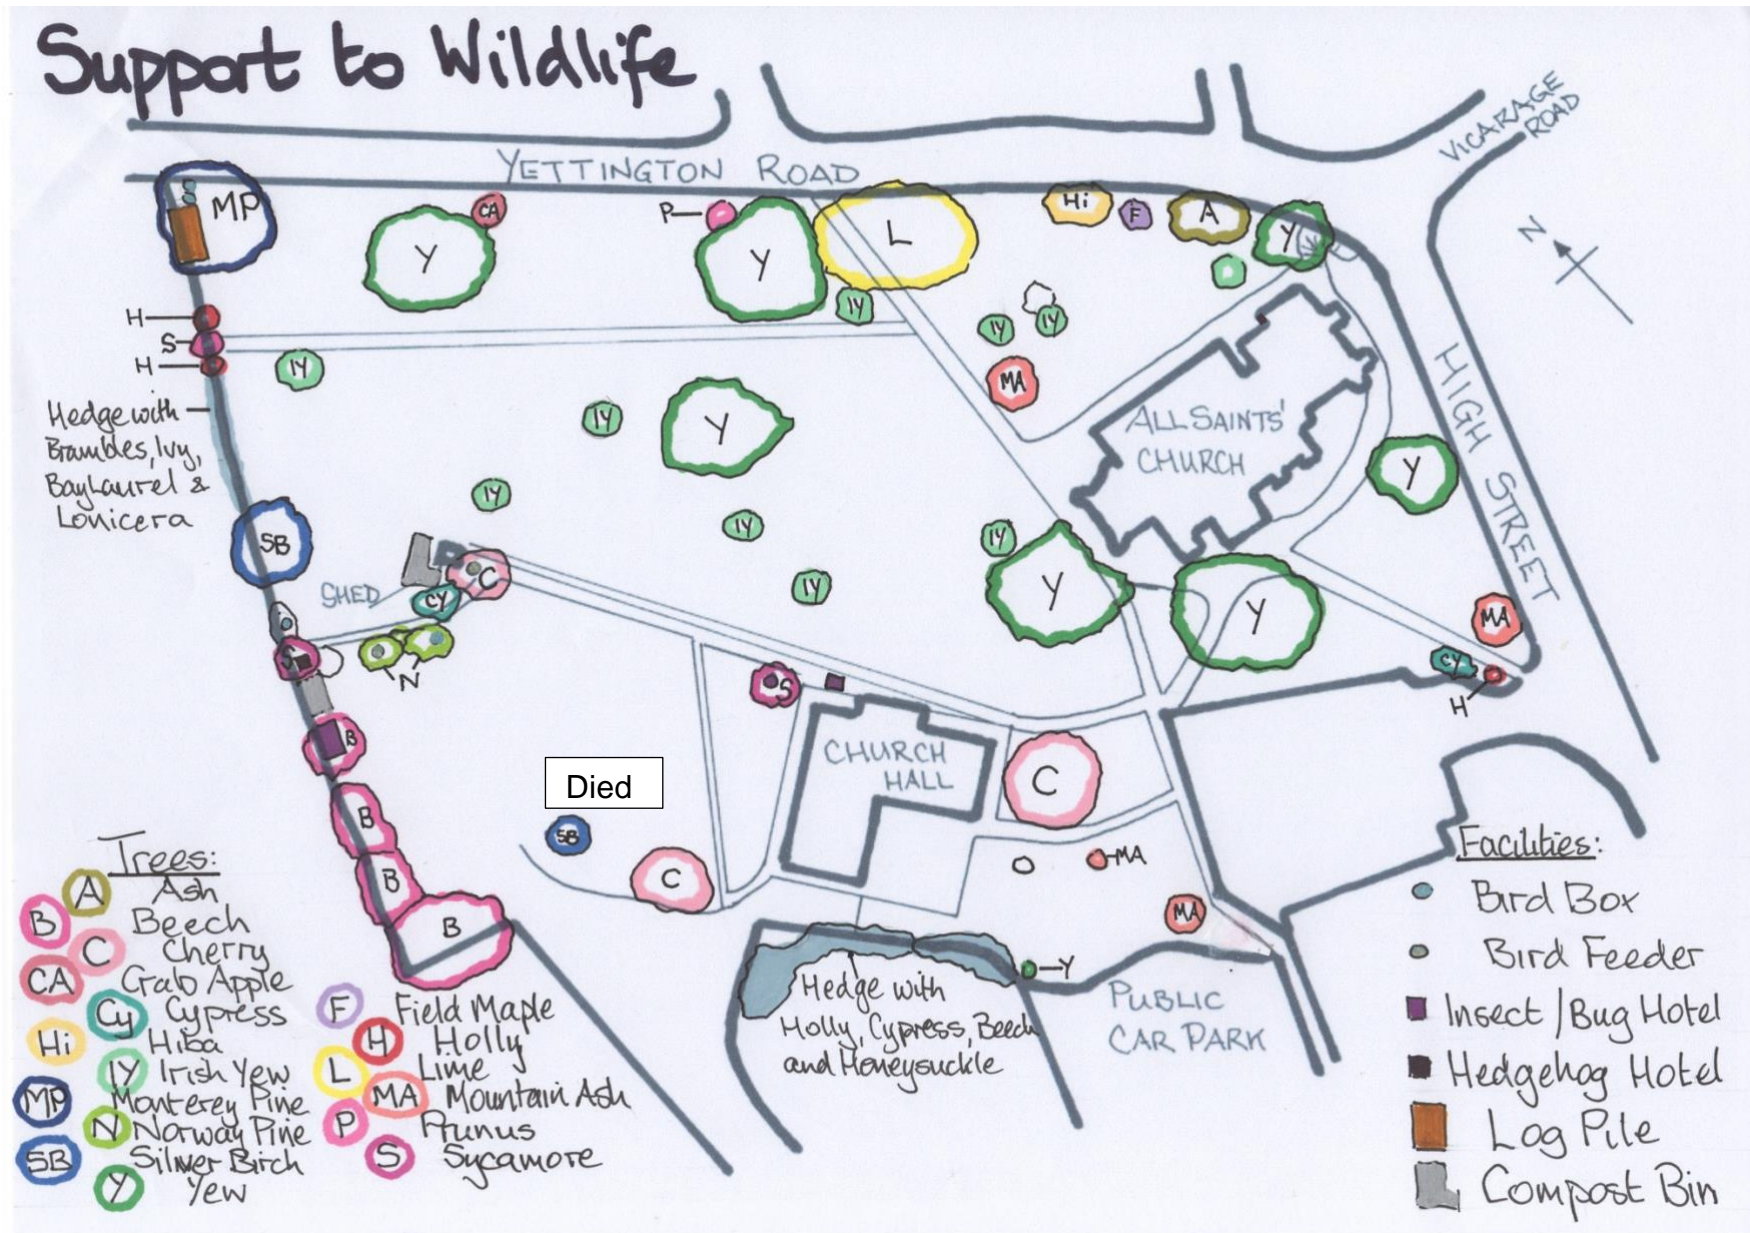 Support to Wildlife
VICARAGE
ROAD
YETTINGTON ROAD
MP
CA
P
Y
Y
L
Hi
F
A
Y
N
IY
IY
IY
H
S
H
IY
MA
Hedge with
Brambles, Ivy,
Bay Laurel &
Lonicera
IY
Y
ALL SAINTS'
CHURCH
Y
HIGH STREET
IY
IY
IY
SB
C
SHED
CY
IY
Y
Y
MA
S
N
S
CY
H
B
CHURCH
HALL
C
Died
B
SB
MA
B
C
MA
B
Y
Hedge with
Holly, Cypress, Beech
and Honeysuckle
PUBLIC
CAR PARK
Trees:
A Ash
B Beech
C Cherry
CA Crab Apple
Cy Cypress
Hi Hiba
IY Irish Yew
MP Monterey Pine
N Norway Pine
SB Silver Birch
Y Yew
F Field Maple
H Holly
L Lime
MA Mountain Ash
P Prunus
S Sycamore
Facilities:
Bird Box
Bird Feeder
Insect/Bug Hotel
Hedgehog Hotel
Log Pile
Compost Bin